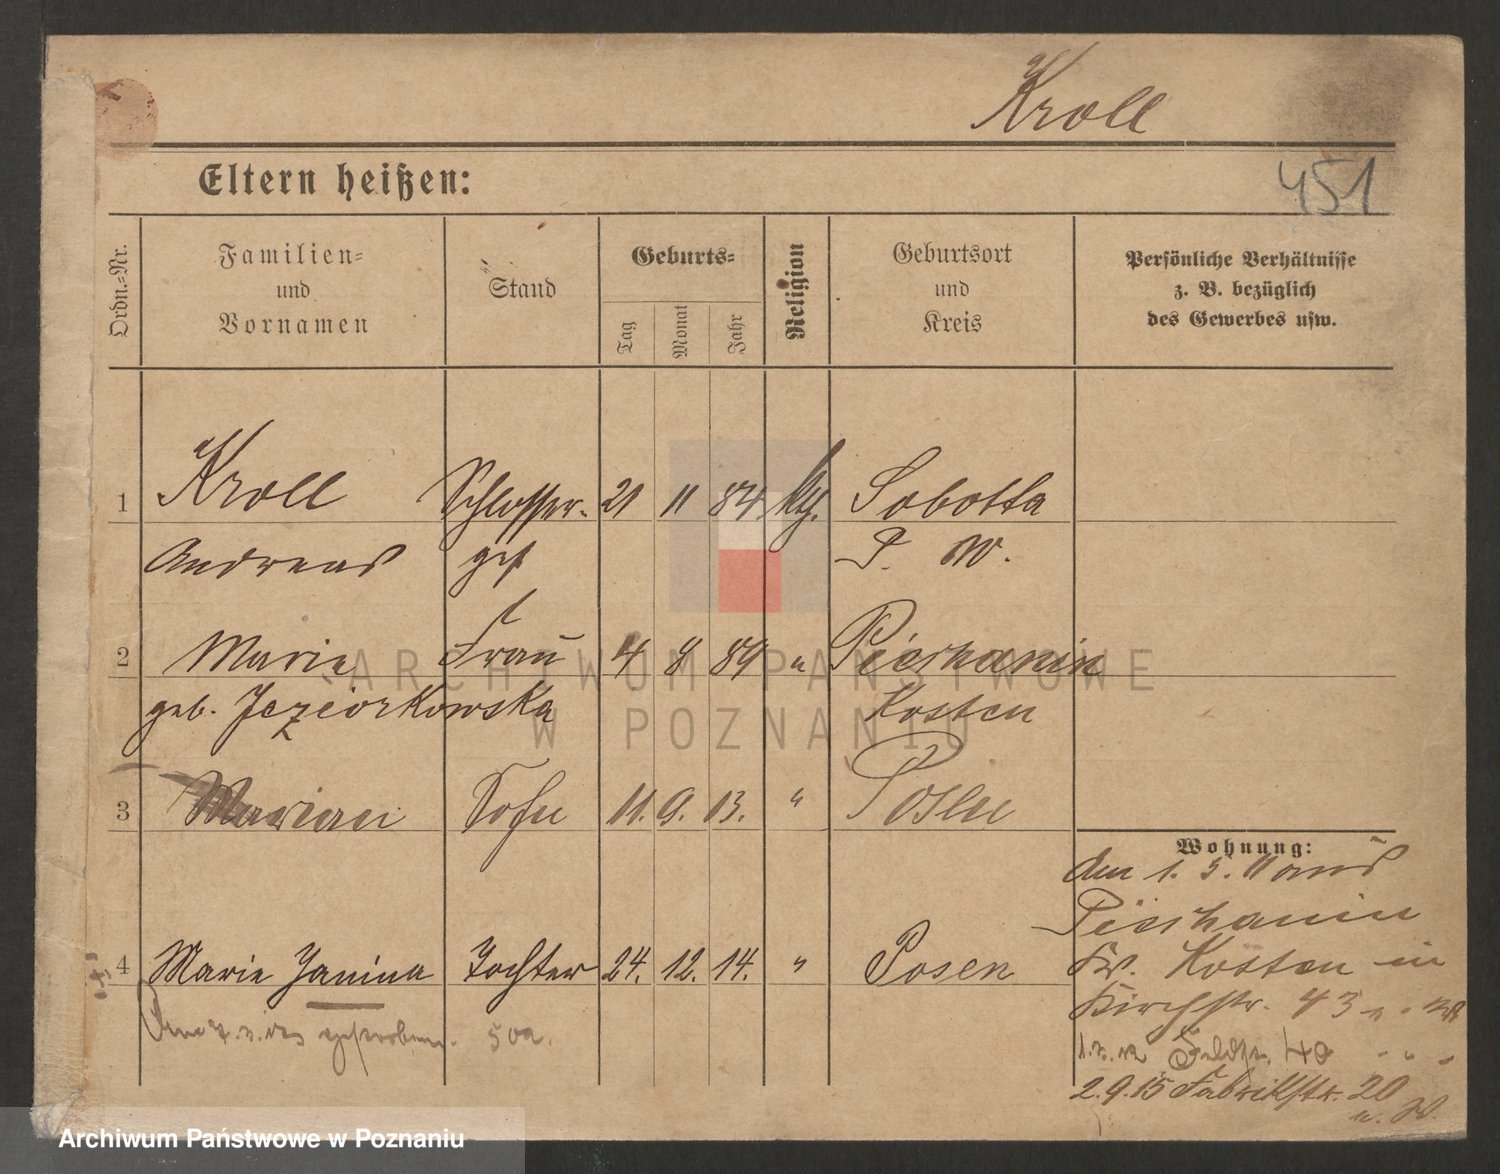 Kroll
451
Eltern heißen:
Ordn.-Nr.
Familien-
und
Vornamen
Stand
Geburts-
Tag
Monat
Jahr
Religion
Geburtsort
und
Kreis
Persönliche Verhältnisse
z. B. bezüglich
des Gewerbes usw.
1 Kroll Schlosser- 21 11 84 kth. Sobotta
Andreas ges P. W.
2 Marie Frau 4 8 89 " Pierhanin
geb. Jeziorkowska Kosten
3 Marian Sohn 11. 9. 13. " Posen
Wohnung:
Am 1. 5. 11 aus
Pierhanin
Kr. Kosten in
4 Marie Janina Tochter 24. 12. 14. " Posen
Kirchstr. 43
gestorben.
Feldstr. 40
2.9.15 Fabrikstr. 20
ARCHIWUM PAŃSTWOWE
W POZNANIU
Archiwum Państwowe w Poznaniu